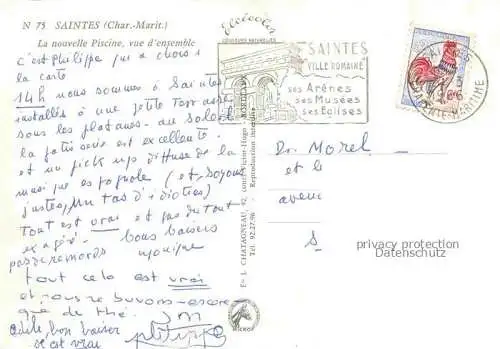 N 75 SAINTES (Char.-Marit.)
La nouvelle Piscine, vue d'ensemble
c'est Philippe qui a choisi
la carte
14h nous sommes à Saintes
installés à une petite terrasse
sous les platanes - au soleil
la patisserie est excellente
et un pick up diffuse de la
musique espagnole (et, soyons
justes, un tas d'idioties)
Tout est vrai et pas du tout
exagéré. bons baisers
pas de remords Monique
tout cela est vrai
et nous ne buvons encore
que de thé. JM
bon baiser
c'est vrai Philippe
COULEURS NATURELLES
E. L. CHATAGNEAU, 92, cours Victor-Hugo
Tél. 92-27-96 - Reproduction interdite
SAINTES
VILLE ROMAINE
ses Arênes
ses Musées
ses Églises
SAINTES
CHARENTE-MARITIME
Dr. Morel
et le
avenu
S
privacy protection
Datenschutz